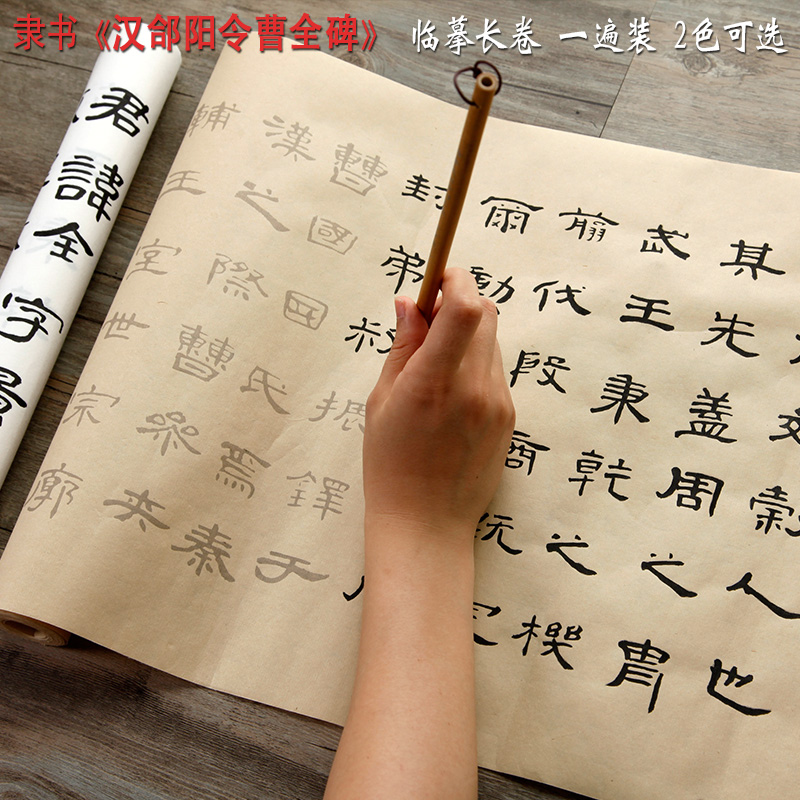 隶书《汉郃阳令曹全碑》 临摹长卷 一遍装 2色可选
君諱全字景
穀人也
其先蓋周之胄
武王秉乾之機
翦伐段商既定
爾勳
封弟叔振鐸于
曹國因氏焉秦
漢之際曹參夾
輔王室世宗廓